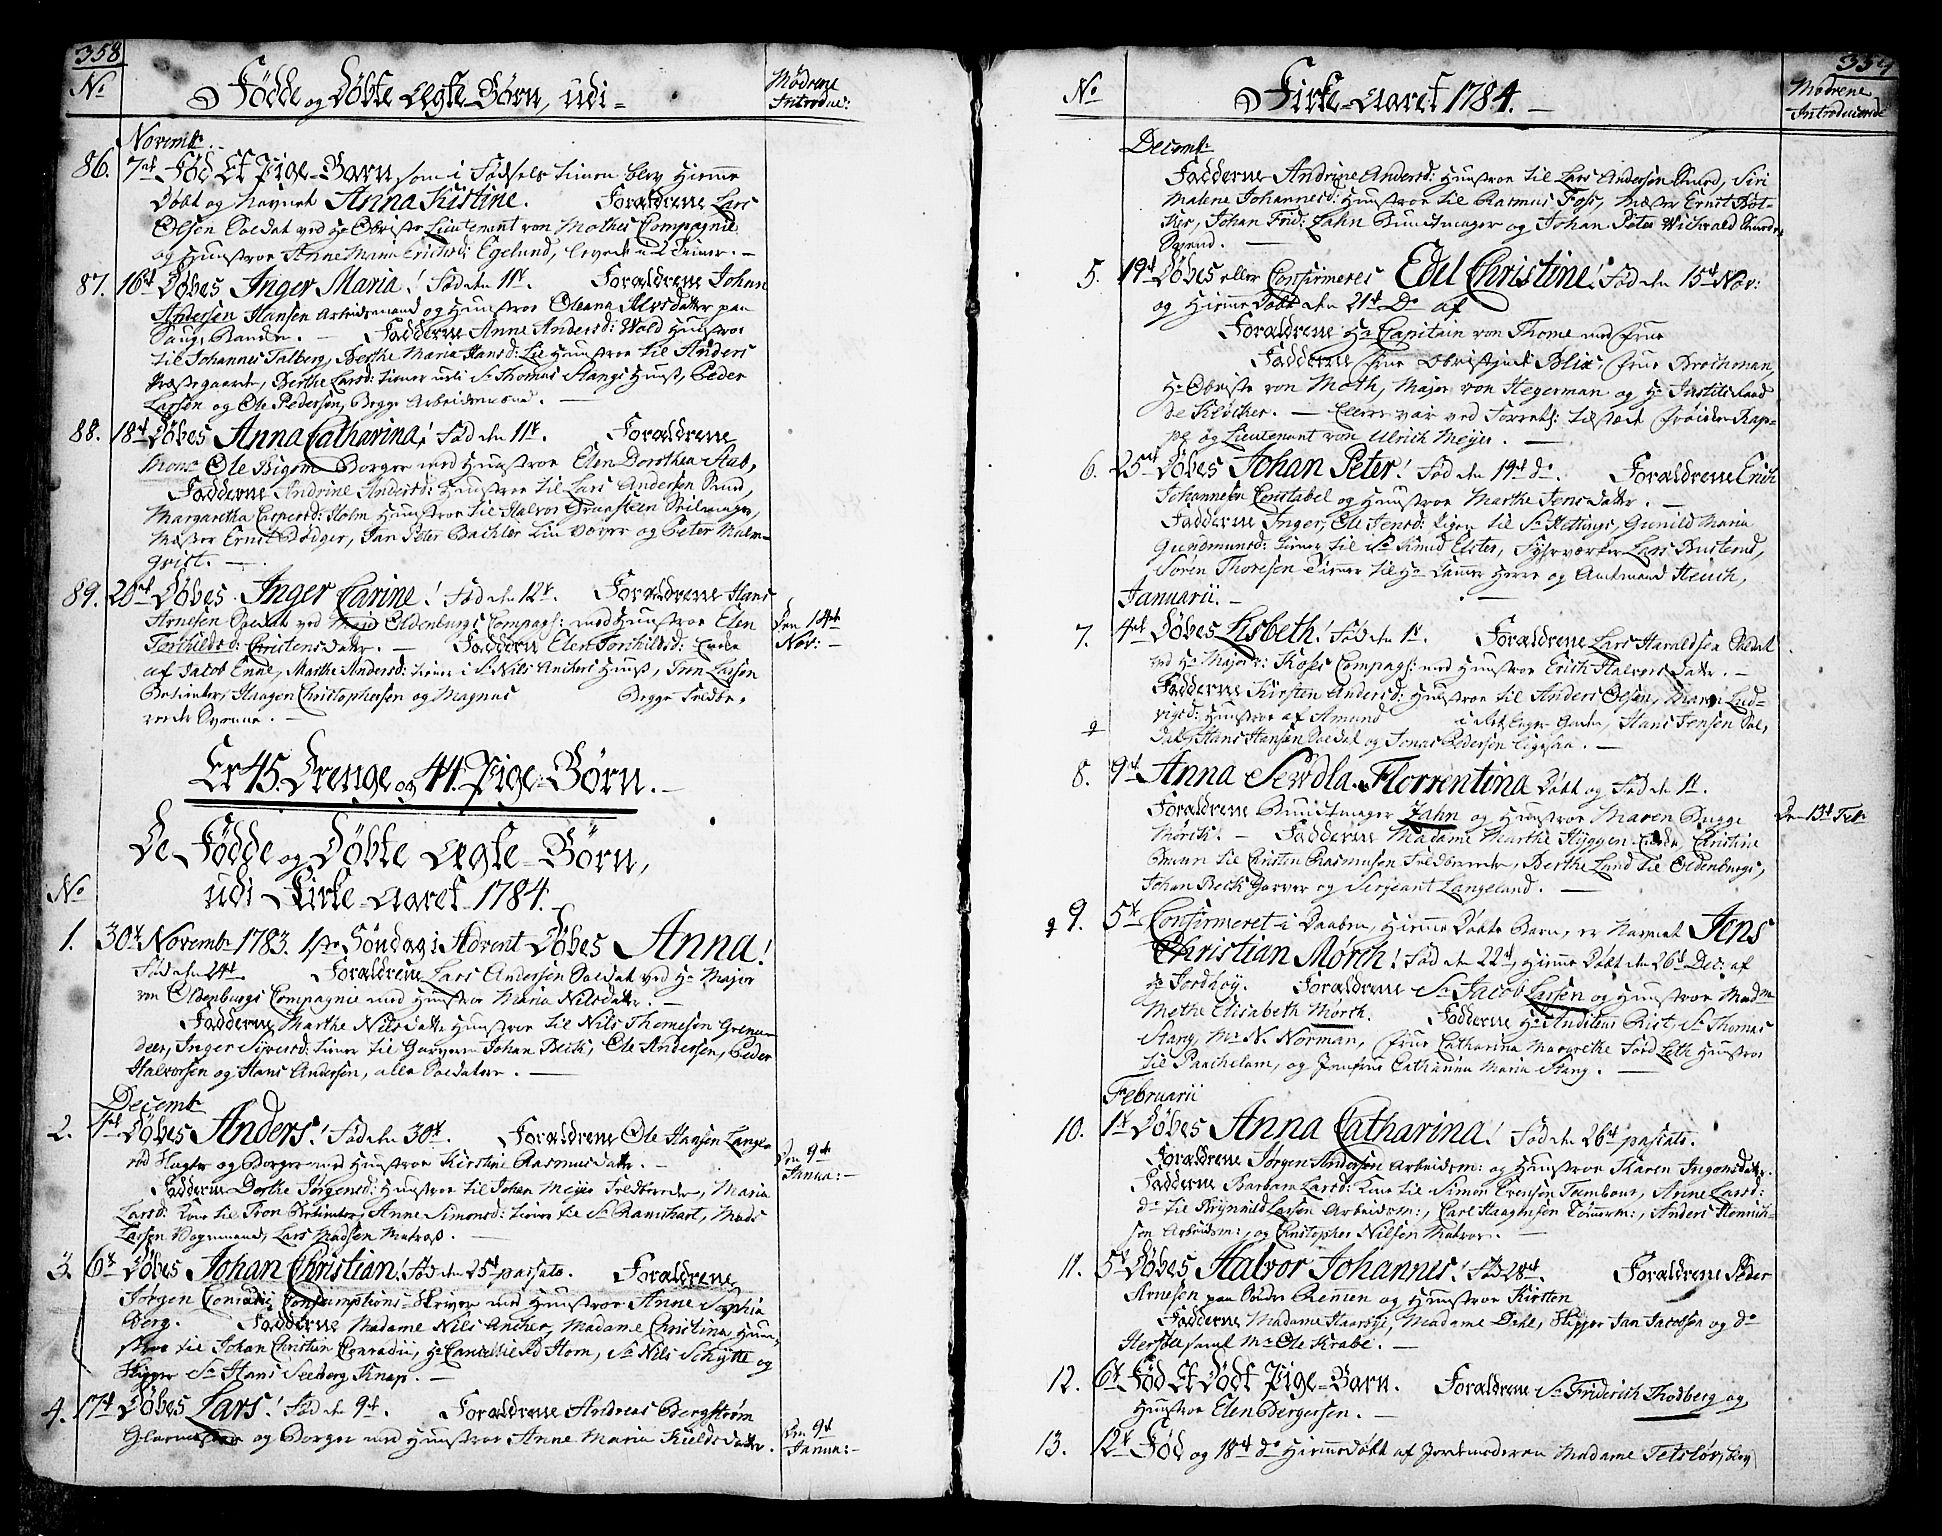 358
No
Fødde og Døbte Ægte-Børn, udi=
Mødrene
Introduc:
Novembr.
86. 7de Fød Et Pige-Barn, som i Fødsels Timen blev hieme
Døbt og Navnet Anna Kistine. Forældrene Lars
Olsen Soldat ved Hr Obriste Lieutenant von Mothes Compagnie
og Hustroe Anne Maria Erichsd: Egelund, levede i 2 Timer. —
87. 16de Døbes Inger Maria! Fød den 11te. Forældrene Johan
Andersen Hansen Arbeidsmand og Hustroe Oleana Alvsdatter paa
Faddere Anne Andersd: Wold Hustroe
til Johannes Talberg, Berthe Maria Hansd: Hustroe til Anders
Præstegaarde, Berthe Larsd: tiener udi Sr Thomas Stangs Huus, Peder
Larsen og Ole Pedersen, Begge Arbeidsmænd. —
88. 18de Døbes Anna Catharina! Fød den 11te. Forældrene
Monsr Ole Bigom Borger med Hustroe Elen Dorothea
Fadderne Andrine Andersd: Hustroe til Lars Andersen Smed,
Margaretha Caspersd: Holm Hustroe til Halvor Gruesteen
Mester Ernst Bødger, Jan Peter Bachler Lin Væver og Peter Malm-
qvist. —
89. 20de Døbes Inger Carine! Fød den 12te. Forældrene Hans
Arnesen Soldat ved Major Oldenburgs Compagn: med Hustroe Elen
Torkildsd: Christensdatter. — Fadderne Elen Torkildsd: Enke
af Jacob Enke, Marthe Andersd: tiener i Sr Nils Anchers Huus, Tron Larsen
Betienter, Haagen Christophersen og Magnus Begge Feldbe-
rede Svenne. —
Den 14de
Nov: —
Er 45. Drenge og 44. Pige-Børn. —
De Fødde og Døbte Ægte-Børn,
udi Kirke-Aaret 1784. —
No
1. 30te Novembr 1783. 1ste Søndag i Advent Døbes Anna!
Fød den 24de. Forældrene Lars Andersen Soldat ved Hr Major
von Oldenburgs Compagnie med Hustroe Maria Nilsdatter. —
Fadderne Marthe Nilsdatter Hustroe til Nils Thomesen Grena-
deer, Inger Siversd: tiener til Garveren Johan Beck, Ole Andersen, Peder
Halvorsen og Hans Andersen, alle Soldater. —
Decembr
2. 4de Døbes Anders! Fød den 30te. Forældrene Ole Hansen Lange-
rød Slagter og Borger med Hustroe Kirstine Rasmusdatter. —
Den 9de
Janua: —
Fadderne Dorthe Jørgensd: Hustroe til Johan Meyer Feldbereder, Maria
Larsd: Kone til Tron Betienter, Anne Simonsd: tiener til Sr Ramshart, Mads
Larsen Vognmand, Lars Madsen Matros. —
3. 6te Døbes Johan Christian! Fød den 25de passato. Forældrene
Jørgen Conradi Consumptions-Skriver med Hustroe Anne Sophia
Berg. Fadderne Madame Nils Ancher, Madame Christina Hu-
stroe til Johan Christian Conradi, Hr Cancelie Rd Horn, Sr Nils Schytte og
Skipper Sr Hans Seeberg Knap. —
4. 17de Døbes Lars! Fød den 9de. Forældrene Andreas Bergstrøm
Glarmester og Borger med Hustroe Anne Maria Kieldsdatter.
Den 9de
Janua: —
No
Kirke-Aaret 1784. —
359
Mødrene
Introducerede
Decembr
Fadderne Andrine Andersd: Hustroe til Lars Andersen Smed, Siri
Malene Johannesd: Hustroe til Rasmus Foss, Mester Ernst Bøt-
ker, Johan Frid: Jahn Buntmager og Johan Peter Wichwald Snedker
Svend. —
5. 19de Døbes eller Confirmeres Edel Christine! Fød den 15de Nov:
og Hiemedøbt den 21de Do af
Forældrene Hr Capitain von Thome med Frue
Fadderne Frue Obristinde Blix, Frue Brochman,
Hr Obriste von Moth, Major von Hegerman og Hr Justits Raad
de Klocker. — Ellers var ved Forrett: tilstæde Frøiken Rap-
pe og Lieutenant von Ulrich Meyer. —
6. 25de Døbes Johan Peter! Fød den 19de do. Forældrene Erich
Johannesen Constabel og Hustroe Marthe Jensdatter. —
Fadderne Inger Ole Jensd: Pigen til Sr Hettings, Gunild Maria
Gundmunsd: tiener til Sr Knud Elster, Fyhrverker Lars Bustrud,
Søren Thoresen Tiener til Hr Camer Herre og Amtmand Heuch,
Januarii. —
7. 4de Døbes Lisbeth! Fød den 1te. Forældrene Lars Haraldsen Soldat
ved Hr Major v: Koss Compagn: med Hustroe Erich Halvorsdatter. —
Fadderne Kirsten Andersd: Hustroe til Anders Olsen, Maren Lud-
vigsd: Hustroe af Amund i Enger Gaden, Hans Jensen Sol-
dat, Hans Hansen Soldat og Jonas Pedersen ligesaa. —
8. 9de Anna Sewdla Florentina Døbt og Fød den 1te.
Forældrene Buntmager Jahn og Hustroe Maren Bugge
Mørch. — Fadderne Madame Marthe Hyggen Enke, Christine
til Christen Rasmusen Feldbereder, Berthe Lund til Oldenburgs,
Johan Beck Garver og Sergeant Langeland. —
Den 13de Feb:
9. 5te Confirmeret i Daaben, Hieme Døbte Barn, er Navnet Jens
Christian Mørch! Fød den 22de, Hieme Døbt den 26de Dec: af
Hr Jordhøy. Forældrene Sr Jacob Larsen og Hustroe Madme
Mette Elisabeth Mørch. Fadderne Hr Auditeur Rist, Sr Thomas
Stang, Mr N. Norman, Frue Catharina Margrethe Fød Leth Hustroe
til Paachelam, og Jomfrue Cathrina Maria Stang. —
Februarii
10. 1te Døbes Anna Catharina! Fød den 26de passato.
Forældrene Jørgen Andersen Arbeidsm: og Hustroe Karen Ingonsdatter.
Fadderne Barbara Larsd: Kone til Simon Evensen Tambour, Anne Larsd:
do til Brynnild Larsen Arbeidsm:, Carl Haagensen Tømmerm:, Anders Henrich-
sen Arbeidsm:, og Christopher Nilsen Matros. —
11. 5te Døbes Halvor Johannes! Fød 28de. Forældrene Peder
Arnesen paa Bensen og Hustroe Kirsten
Fadderne Madame Haarbye, Madame Dahl, Skipper Jan Jacobsen og do
Herslee samt Mr Ole Krabe. —
12. 6te Fød Et Dødt Pige-Barn. Forældrene Sr Friderich Thodberg og
Hustroe Elen Bergersen. —
13. 12te Fød og 18de do Hiemedøbt af Jordemoderen Madame Tetsløv, blev